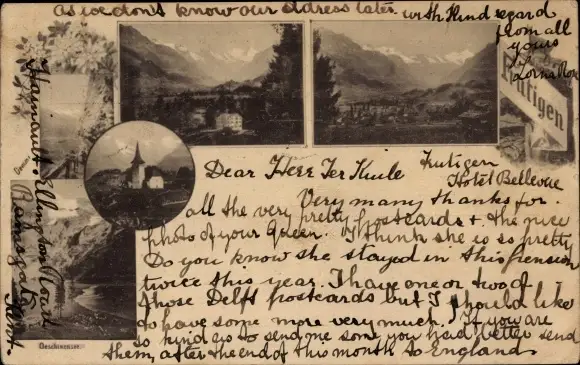 Frutigen
Dear Herr Ter Kuile
Frutigen
Hotel Bellevue
Very many thanks for
all the very pretty postcards & the nice
photo of your Queen. I think she is so pretty
Do you know she stayed in this pension
twice this year. I have one or two of
those Delft postcards but I should like
to have some more very much. If you are
so kind as to send me some you had better send
them, after the end of this month to England
Hainault. Ellington Road
Ramsgate
Kent.
as we don't know our address later.
with kind regard
from all
yours
Lorna
Oeschinensee